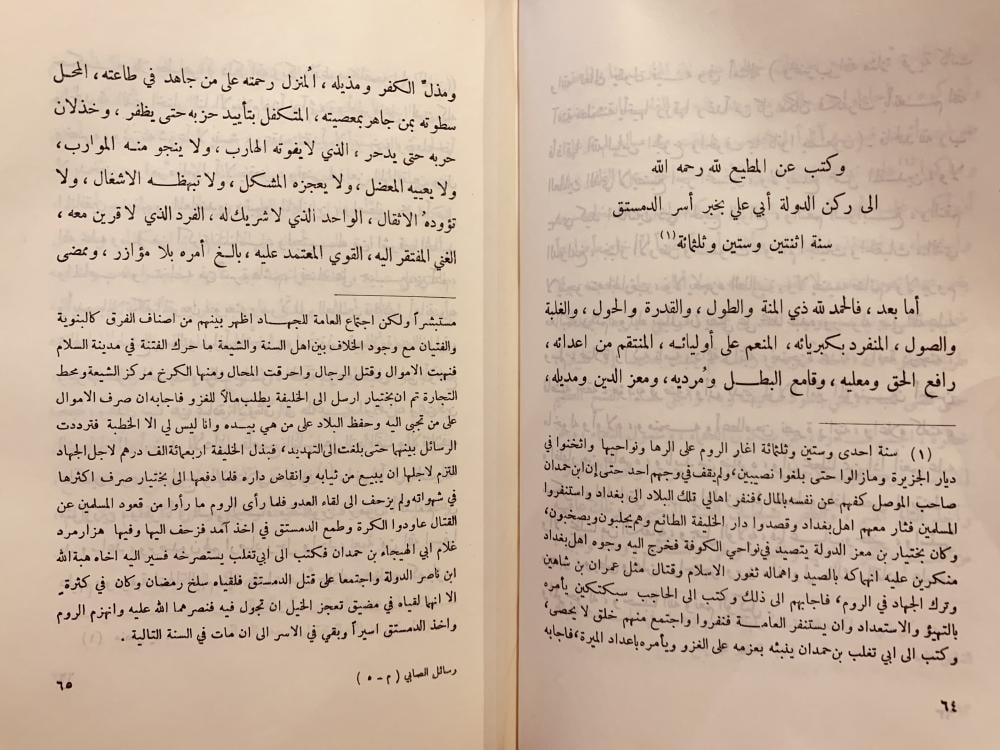 وكتب عن المطيع لله رحمه الله
الى ركن الدولة أبي علي بخبر أسر الدمستق
سنة اثنتين وستين وثلثمائة(١)
أما بعد، فالحمد لله ذي المنة والطول، والقدرة والحول، والغلبة
والصول، المنفرد بكبريائه، المنعم على أوليائه، المنتقم من اعدائه،
رافع الحق ومعليه، وقامع البطل ومُرديه، ومعز الدين ومديله،
(١) سنة احدى وستين وثلثمائة اغار الروم على الرها ونواحيها واثخنوا في
ديار الجزيرة ومازالوا حتى بلغوا نصيبين، ولم يقف في وجهم احد حتى إن ابن حمدان
صاحب الموصل كفهم عن نفسه بالمال، فنفر اهالي تلك البلاد الى بغداد واستنفروا
المسلمين فثار معهم اهل بغداد وقصدوا دار الخليفة الطائع وهم يجلبون ويصخبون،
وكان بختيار بن معز الدولة يتصيد في نواحي الكوفة فخرج اليه وجوه اهل بغداد
منكرين عليه انهاكه بالصيد واهماله ثغور الاسلام وقتال مثل عمران بن شاهين
وترك الجهاد في الروم، فاجابهم الى ذلك وكتب الى الحاجب سبكتكين يأمره
بالتهيؤ والاستعداد وان يستنفر العامة فنفروا واجتمع منهم خلق لا يحصى،
وكتب الى ابي تغلب بن حمدان ينبئه بعزمه على الغزو ويأمره باعداد الميرة، فاجابه
٦٤
ومذلّ الكفر ومذيله، اُلمنزل رحمته على من جاهد في طاعته، المحل
سطوته بمن جاهر بمعصيته، المتكفل بتأييد حزبه حتى يظفر، وخذلان
حربه حتى يدحر، الذي لا يفوته الهارب، ولا ينجو منه الموارب،
ولا يعييه المعضل، ولا يعجزه المشكل، ولا تبهظه الاشغال، ولا
تؤوده ُ الاثقال، الواحد الذي لا شريك له، الفرد الذي لا قرين معه،
الغني المفتقر اليه، القوي المعتمد عليه، بالغ أمره بلا مؤازر، وممضى
مستبشراً ولكن اجتماع العامة للجهاد اظهر بينهم من اصناف الفرق كالبنوية
والفتيان مع وجود الخلاف بين اهل السنة والشيعة ما حرك الفتنة في مدينة السلام
فنهبت الاموال وقتل الرجال واحرقت المحال ومنها الكرخ مركز الشيعة ومحط
التجارة ثم ان بختيار ارسل الى الخليفة يطلب مالاً للغزو فاجابه ان صرف الاموال
على من تجبى اليه وحفظ البلاد على من هي بيده وانا ليس لي الا الخطبة فترددت
الرسائل بينهما حتى بلغت الى التهديد، فبذل الخليفة اربعمائة الف درهم لاجل الجهاد
التزم لاجلها ان يبيع من ثيابه وانقاض داره فلما دفعها الى بختيار صرف اكثرها
في شهواته ولم يزحف الى لقاء العدو فلما رأى الروم ما رأوا من قعود المسلمين عن
القتال عاودوا الكرة وطمع الدمستق في اخذ آمد فزحف اليها وفيها هزارمرد
غلام أبي الهيجاء بن حمدان فكتب الى ابي تغلب يستصرخه فسير اليه اخاه هبة الله
ابن ناصر الدولة واجتمعا على قتل الدمستق فلقياه سلخ رمضان وكان في كثرة
الا انهما لقياه في مضيق تعجز الخيل ان تجول فيه فنصرهما الله عليه وانهزم الروم
واخذ الدمستق اسيراً وبقي في الاسر الى ان مات في السنة التالية.
رسائل الصابي (م - ٥)
٦٥